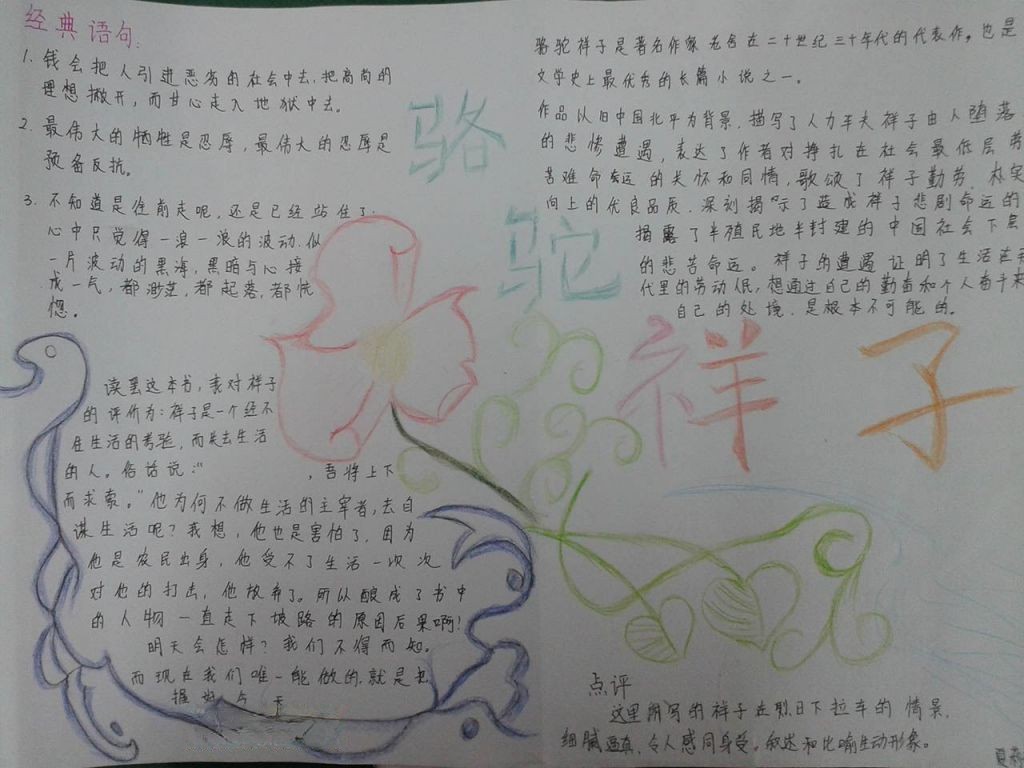 经典语句:
1. 钱会把人引进恶劣的社会中去,把高尚的
理想撇开,而甘心走入地狱中去。
2. 最伟大的牺牲是忍辱,最伟大的忍辱是
预备反抗。
3. 不知道是往前走呢,还是已经站住了,
心中只觉得一浪一浪的波动,似
一片波动的黑海,黑暗与心接
成一气,都渺茫,都起落,都恍
惚。
骆驼祥子是著名作家老舍在二十世纪三十年代的代表作。也是
文学史上最优秀的长篇小说之一。
作品以旧中国北平为背景,描写了人力车夫祥子由人堕落
的悲惨遭遇,表达了作者对挣扎在社会最低层劳
苦难命运的关怀和同情,歌颂了祥子勤劳、朴实
向上的优良品质,深刻揭示了造成祥子悲剧命运的
揭露了半殖民地半封建的中国社会下层
的悲苦命运。祥子的遭遇证明了生活在
代里的劳动人民,想通过自己的勤苦和个人奋斗来
自己的处境,是根本不可能的。
骆
驼
祥子
读罢这本书,我对祥子
的评价为:祥子是一个经不
住生活的考验,而失去生活
的人。俗话说:“ ,吾将上下
而求索。”他为何不做生活的主宰者,去自
谋生活呢?我想,他也是害怕了,因为
他是农民出身,他受不了生活一次次
对他的打击,他放弃了。所以酿成了书中
的人物一直走下坡路的原因后果啊!
明天会怎样?我们不得而知。
而现在我们唯一能做的就是去
握 今天
点评
这里所写的祥子在烈日下拉车的情景,
细腻逼真、令人感同身受。叙述和比喻生动形象。
夏